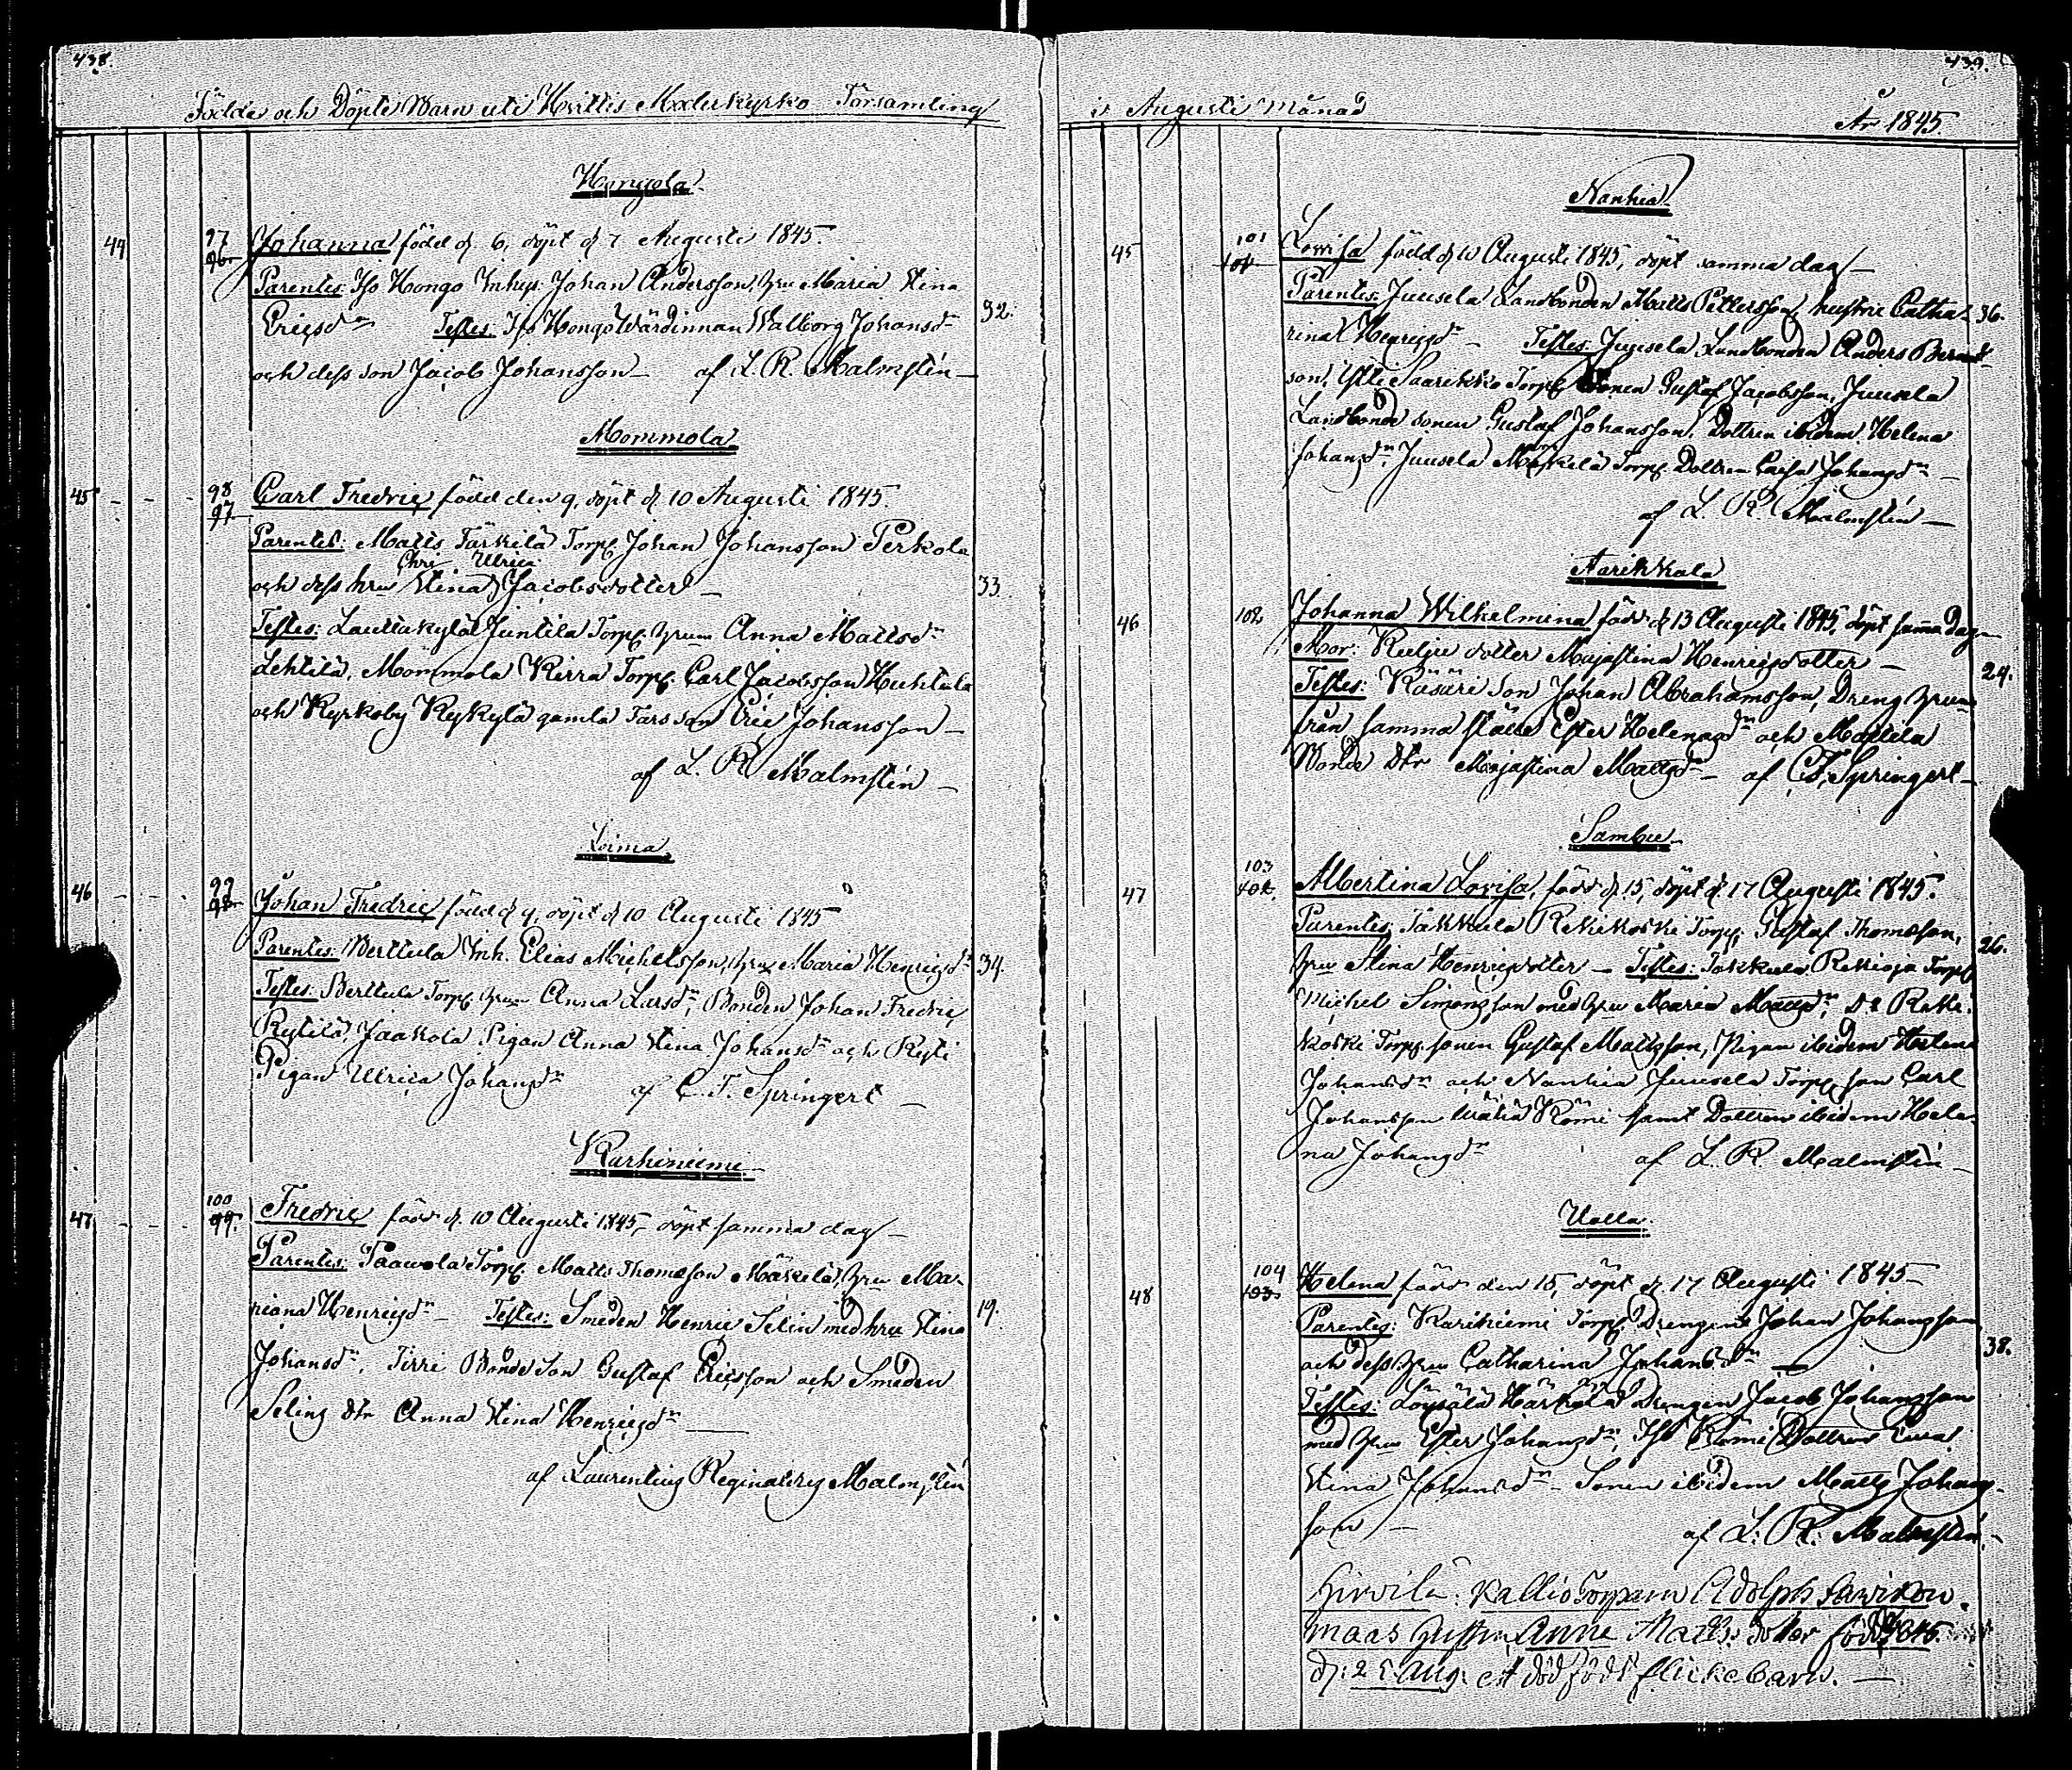 438.
Födde och Döpte Barn uti Hvittis Moderkyrko Församling
Hongola
44 97 96 Johanna född d. 6, döpt d 7 Augusti 1845.
Parentes: Iso Hongo Inhys. Johan Andersson, hru Maria Stina
Ericsdr Testes: Iso Hongo Wärdinnan Walborg Johansdr 32.
och dess son Jacob Johansson — af L. R. Malmstén —
Mommola
45 - - - 98 97 Carl Fredric född den 9, döpt d 10 Augusti 1845.
Parentes: Matts Tärkilä Torp. Johan Johansson Perkola
Chri Ulrica
och dess hru Stina Jacobsdotter — 33.
Testes: Lauttakylä Juntila Torp. hrun Anna Mattsdr
Lehtilä, Mommola Kirra Torp. Carl Jacobsson Huhtala
och Kyrkoby Kykylä gamla Fars son Eric Johansson —
af L. R. Malmstén —
Loima
46 - - - 99 98 Johan Fredric född d 9, döpt d 10 Augusti 1845
Parentes: Berttula Inh. Elias Michelsson, hru Maria Henricsdr 34.
Testes: Berttula Torp. hrun Anna Larsdr, Bonden Johan Fredric
Kytilä, Jaakola Pigan Anna Stina Johansdr och Kyti
Pigan Ulrica Johansdr af C. F. Springert —
Karhiniemi
47 - - - 100 99. Fredric född d. 10 Augusti 1845, döpt samma dag —
Parentes: Paavola Torp. Matts Thomasson Mäkelä, hru Ma-
riana Henricsdr — Testes: Smeden Henric Selin med hru Stina 19.
Johansdr, Tirri Bonde Son Gustaf Ericsson och Smeden
Selins dtr Anna Stina Henricsdr —
af Laurentius Reginaldus Malmstén
439.
i Augusti Månad
År 1845
Nanhia
45 101 Lovisa född d 10 Augusti 1845, döpt samma dag —
Parentes: Juusela Landbonden Matts Pettersson, hustru Catha- 36.
rina Henricsdr — Testes: Juusela Landbonden Anders Bernd
son, Saarikko Torp. Sonen Gustaf Jacobsson, Juusela
Landbonde sonen Gustaf Johansson, Dottren ibidem Helena
Johansdr, Juusela Mäkelä Torp. Dottren Johansdr —
af L. R. Malmstén —
Aarikkala
46 102 Johanna Wilhelmina född d 13 Augusti 1845, döpt samma Dag —
Mor: Kulju dotter Majastina Henricsdotter — 24.
Testes: Räsäri Son Johan Abrahamsson, Dreng hrun
från samma ställe Ester Helenasdr och Mattila
Bonde Dtr Majastina Mattsdr — af C. F. Springert —
Sambu
47 103 102. Albertina Lovisa, född d. 15, döpt d. 17 Augusti 1845.
Parentes: Takkula Rekikoski Torp. Gustaf Thomasson,
hru Stina Henricsdotter — Testes: Takkula Rekioja Torp 26.
Michel Simonsson med hru Maria Mattsdr, D:o Reki-
koski Torp. sonen Gustaf Mattsson, Pigan ibidem Helena
Johansdr och Nanhia Juusela Torp. son Carl
Johansson Römi samt Dottren ibidem Hele-
na Johansdr af L. R. Malmstén —
Ualla
48 104 103 Helena född den 15, döpt d 17 Augusti 1845 —
Parentes: Karhiniemi Torp. Drengen Johan Johansson
och dess hru Catharina Johansdr — 38.
Testes: Löysälä Härkälä Drengen Jacob Johansson
med hru Ester Johansdr, Iso Römi Dottren Eva
Stina Johansdr — Sonen ibidem Matts Johans-
son — af L. R. Malmstén —
Hirvilä: Kallio Torparn Adolph Savikon.
maas Hustru Anna Matts. dotter född 1845.
d: 25 Aug. ett dödfödt flickebarn. —